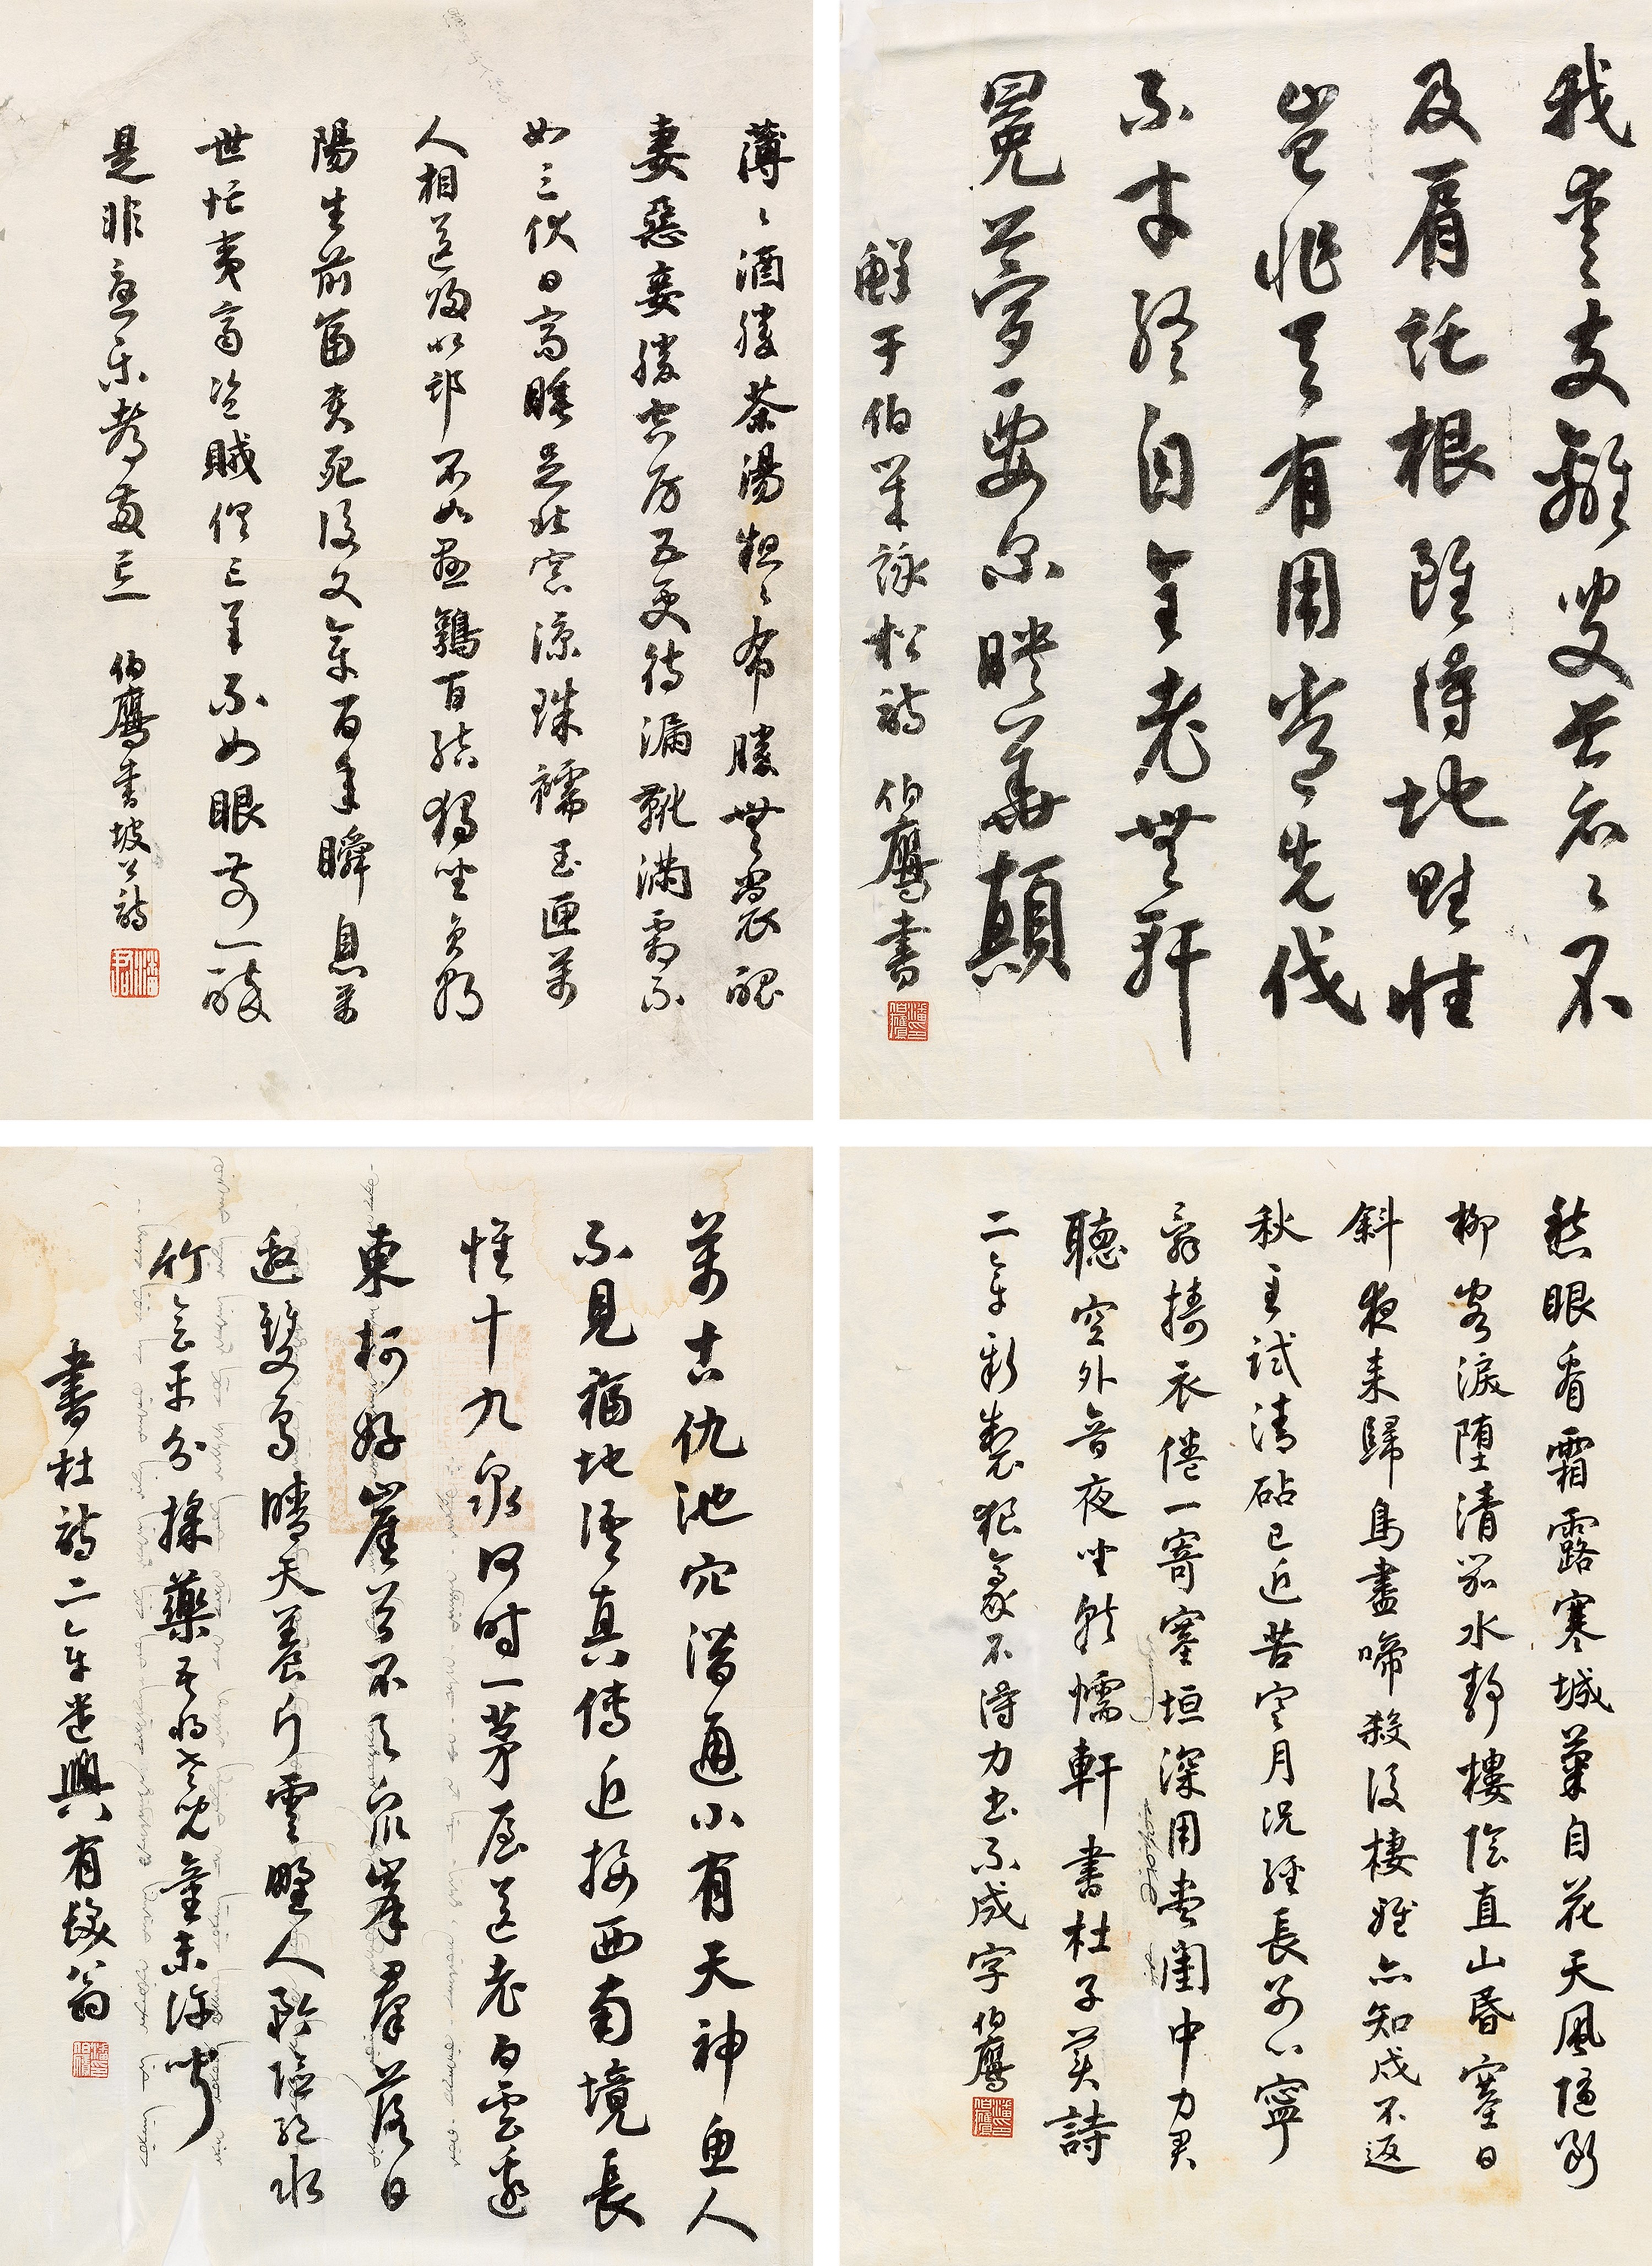 我愛支離叟昔〻不
及肩託根雖得地野性
豈非天有用當先伐
不才終自全老無軒
冕夢要爾映華顛
鮮于伯幾詠松詩 伯鷹書
潘印伯鷹
薄〻酒勝茶湯粗〻布勝無裳醜
妻惡妾勝空房五更待漏靴滿霜不
如三伏日高睡足北窗涼珠襦玉匣萬
人相送歸北邙不如懸鶉百結獨坐負朝
陽生前富貴死後文章百年瞬息萬
世忙夷齊盜賊俱亡羊不如眼前一醉
是非憂樂都兩忘 伯鷹書坡公詩
愁眼看霜露寒城菊自花天風隨斷
柳客淚墮清笳水靜樓陰直山昏塞日
斜夜來歸鳥盡啼殺後棲鴉亦知戍不返
秋至試清砧已近苦寒月況經長別心寧
辭擣衣倦一寄塞垣深用盡閨中力君
聽空外音夜坐懦軒書杜子美詩
二章新製狼毫不得力書不成字 伯鷹
潘印伯鷹
萬古仇池穴潛通小有天神魚人
不見福地語真傳近接西南境長
懷十九泉何時一茅屋送老白雲邊
東柯好崖谷不與眾峯群落日
邀雙鳥晴天養片雲野人矜險絕水
竹會平分採藥吾將老兒童未遣聞
書杜詩二章遣興有髮翁
潘印伯鷹